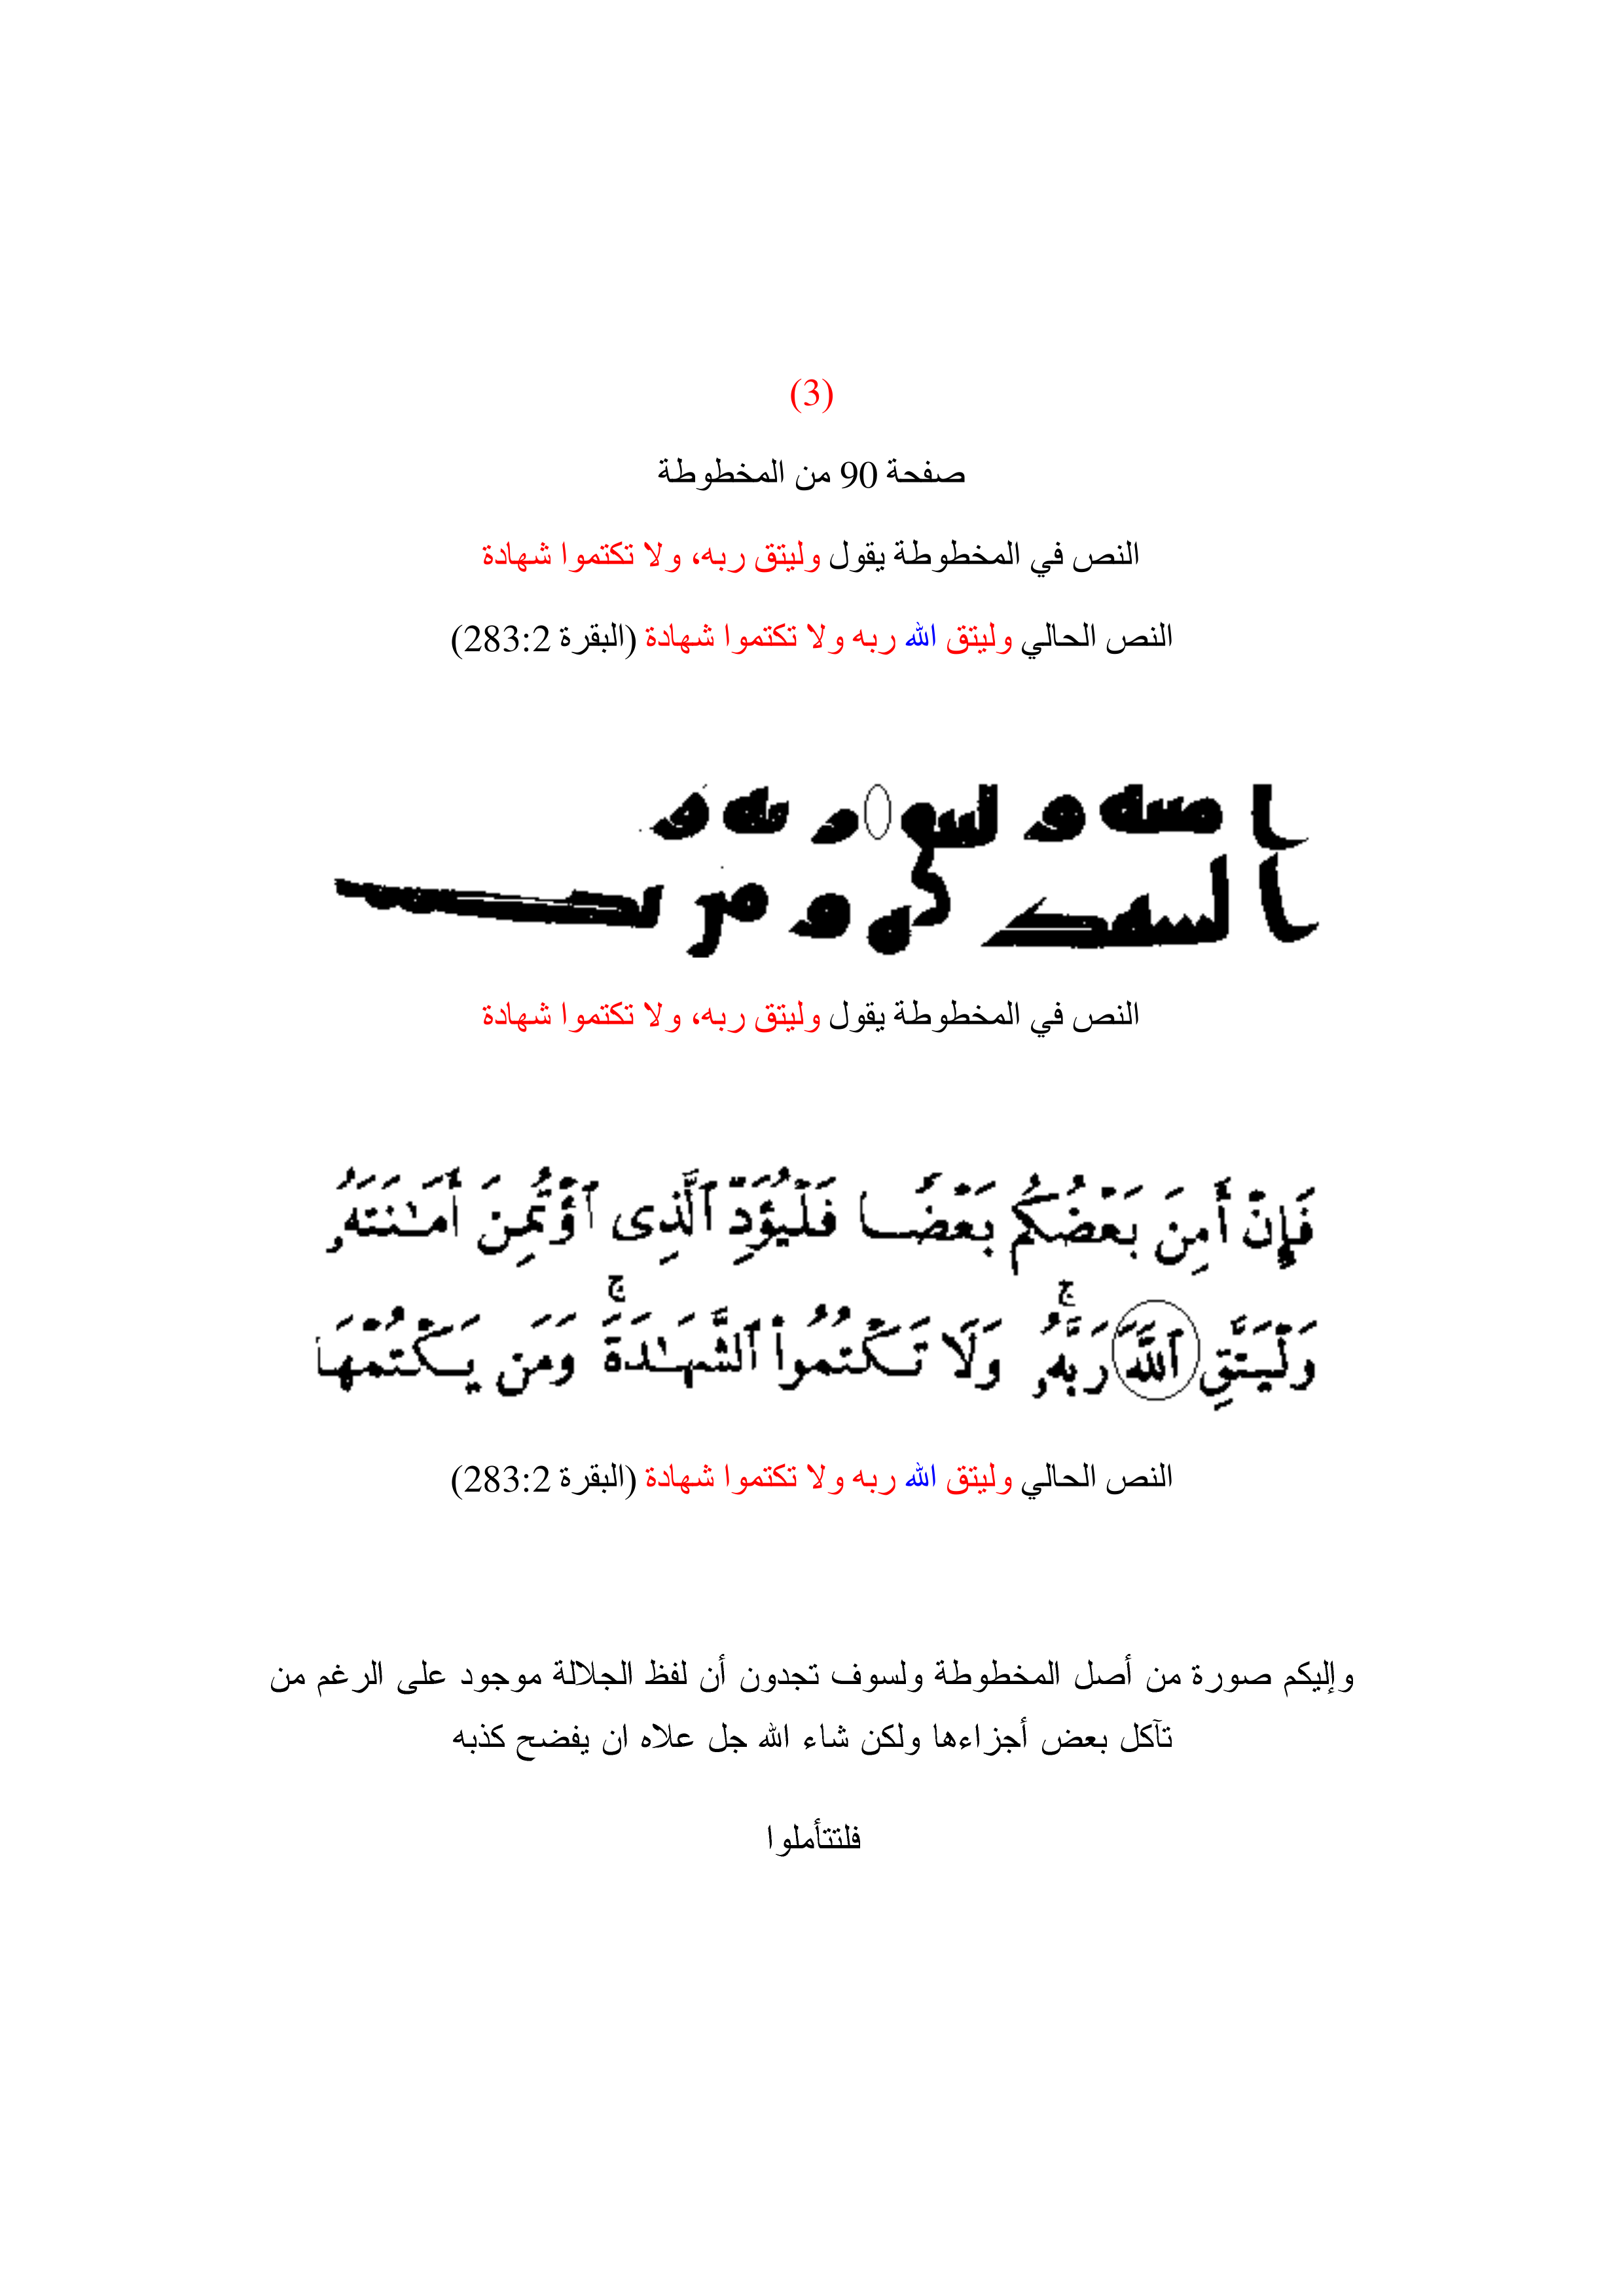 (3)
صفحة 90 من المخطوطة
النص في المخطوطة يقول وليتق ربه، ولا تكتموا شهادة
النص الحالي وليتق الله ربه ولا تكتموا شهادة (البقرة 283:2)
النص في المخطوطة يقول وليتق ربه، ولا تكتموا شهادة
فَإِنْ أَمِنَ بَعْضُكُم بَعْضًا فَلْيُؤَدِّ ٱلَّذِى ٱؤْتُمِنَ أَمَـٰنَتَهُۥ
وَلْيَتَّقِ ٱللَّهَ رَبَّهُۥ ۚ وَلَا تَكْتُمُوا۟ ٱلشَّهَـٰدَةَ ۚ وَمَن يَكْتُمْهَا
النص الحالي وليتق الله ربه ولا تكتموا شهادة (البقرة 283:2)
وإليكم صورة من أصل المخطوطة ولسوف تجدون أن لفظ الجلالة موجود على الرغم من
تآكل بعض أجزاءها ولكن شاء الله جل علاه ان يفضح كذبه
فلتتأملوا